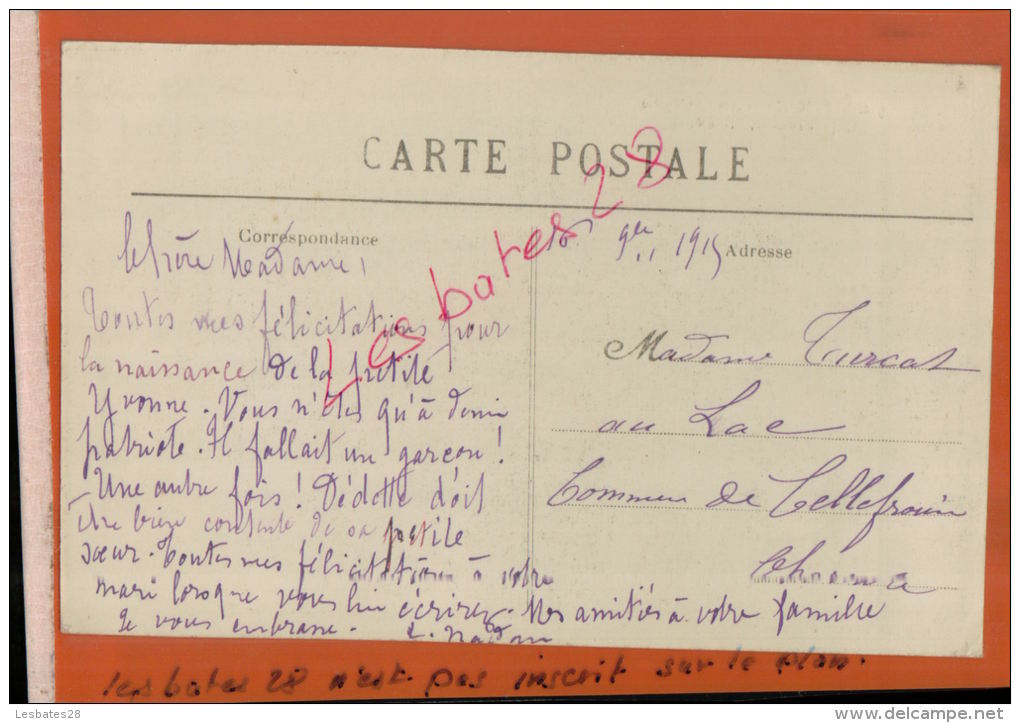 CARTE POSTALE
Correspondance
Adresse
9bre 1915
Chère Madame,
Toutes mes félicitations pour
la naissance de la petite
Yvonne. Vous n'êtes qu'à demi
patriote. Il fallait un garçon!
Une autre fois! Dédette doit
être bien contente de sa petite
sœur. Toutes mes félicitations à votre
mari lorsque vous lui écrirez. Mes amitiés à votre famille
Je vous embrasse.
Madame Turcat
au Lac
Commune de Cellefrouin
Charente
Lesbates28
lesbates 28 n'est pas inscrit sur le plan.
Lesbates28
www.delcampe.net